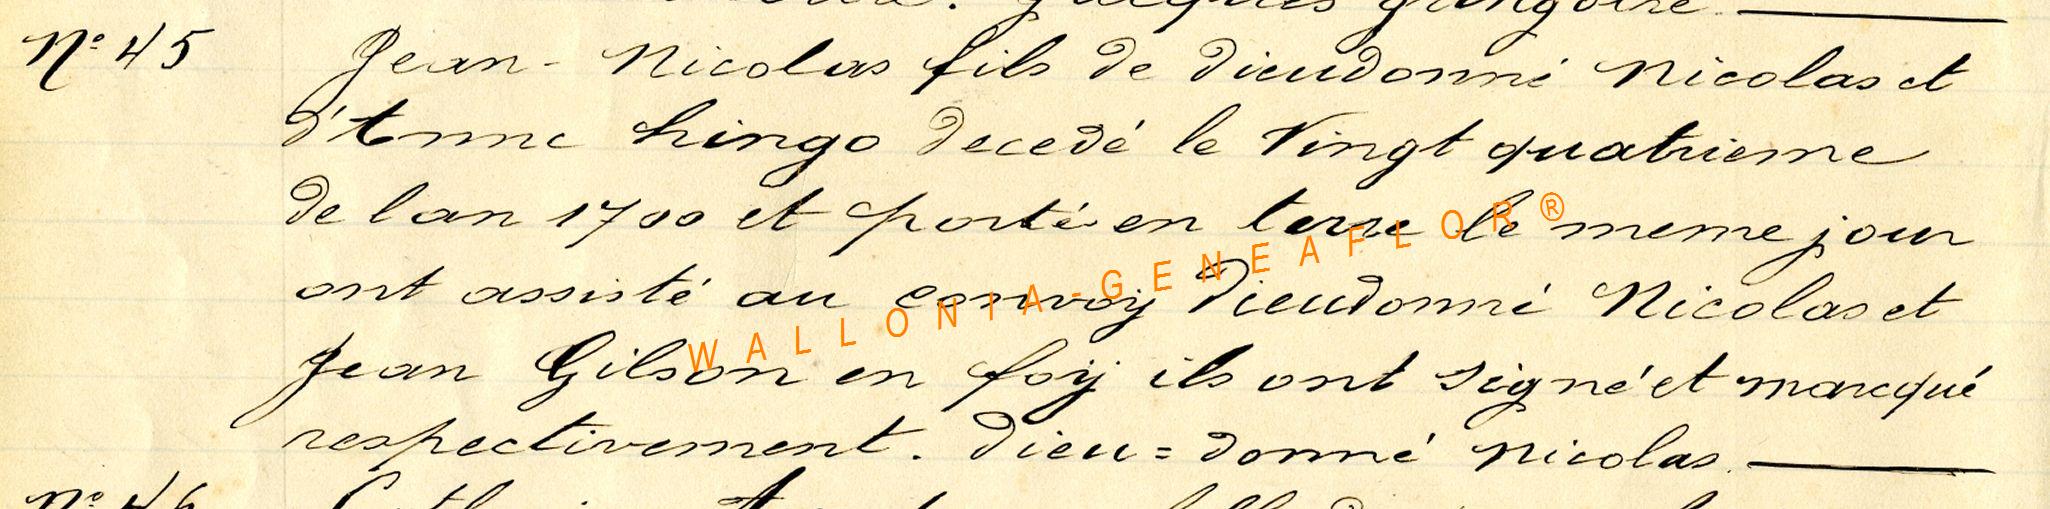 Jacques gringoire.
N° 45 Jean-Nicolas fils de dieudonné Nicolas et
d'Anne hingo decedé le Vingt quatrieme
de lan 1700 et porté en terre le meme jour
ont assisté au convoij Dieudonné Nicolas et
Jean Gilson en foij ils ont signé et marcqué
respectivement. Dieu=donné Nicolas.
WALLONIA-GENEAFLOR®
N° 46